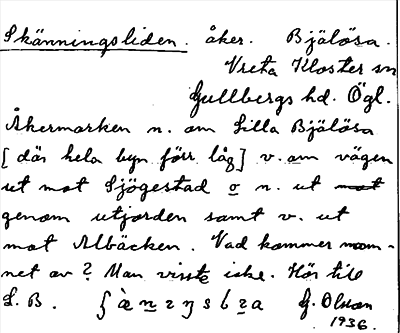 Skänningsliden. åker. Bjälösa.
Vreta Kloster sn
Gullbergs hd. Ögl.
Åkermarken n. om Lilla Bjälösa
[där hela byn förr låg] v. om vägen
ut mot Sjögestad o n. ut mot
genom utjorden samt v. ut
mot Albäcken. Vad kommer nam-
net av? Man visste icke. Hör till
L. B. G. Olson
1936.